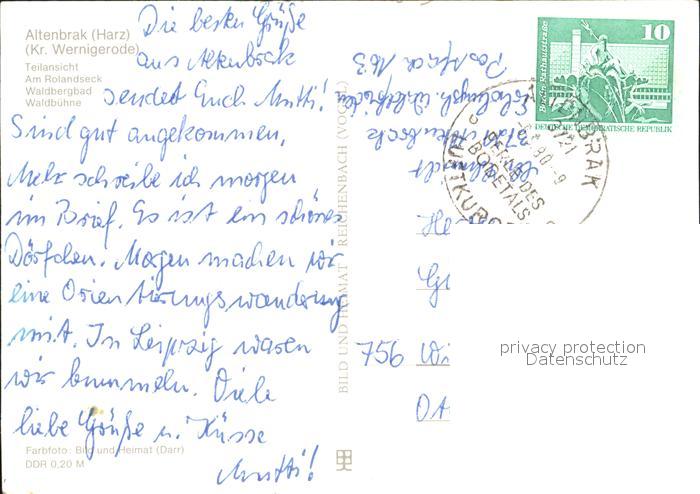 Altenbrak (Harz)
(Kr. Wernigerode)
Teilansicht
Am Rolandseck
Waldbergbad
Waldbühne
Die besten Grüße
aus Altenbrak
sendet Euch Mutti!
Sind gut angekommen.
Mehr schreibe ich morgen
im Brief. Es ist ein schönes
Dörfchen. Morgen machen wir
eine Orientierungswanderung
mit. In Leipzig waren
wir bummeln. Viele
liebe Grüße u. Küsse
Mutti!
Farbfoto: Bild und Heimat (Darr)
DDR 0,20 M
BILD UND HEIMAT REICHENBACH (VOGTL)
Postfach 163
3721 Altenbrak
10
Berlin, Rathausstraße
DEUTSCHE DEMOKRATISCHE REPUBLIK
ALTENBRAK
3721
PERLE DES
BODETALS
756 Wi
privacy protection
Datenschutz